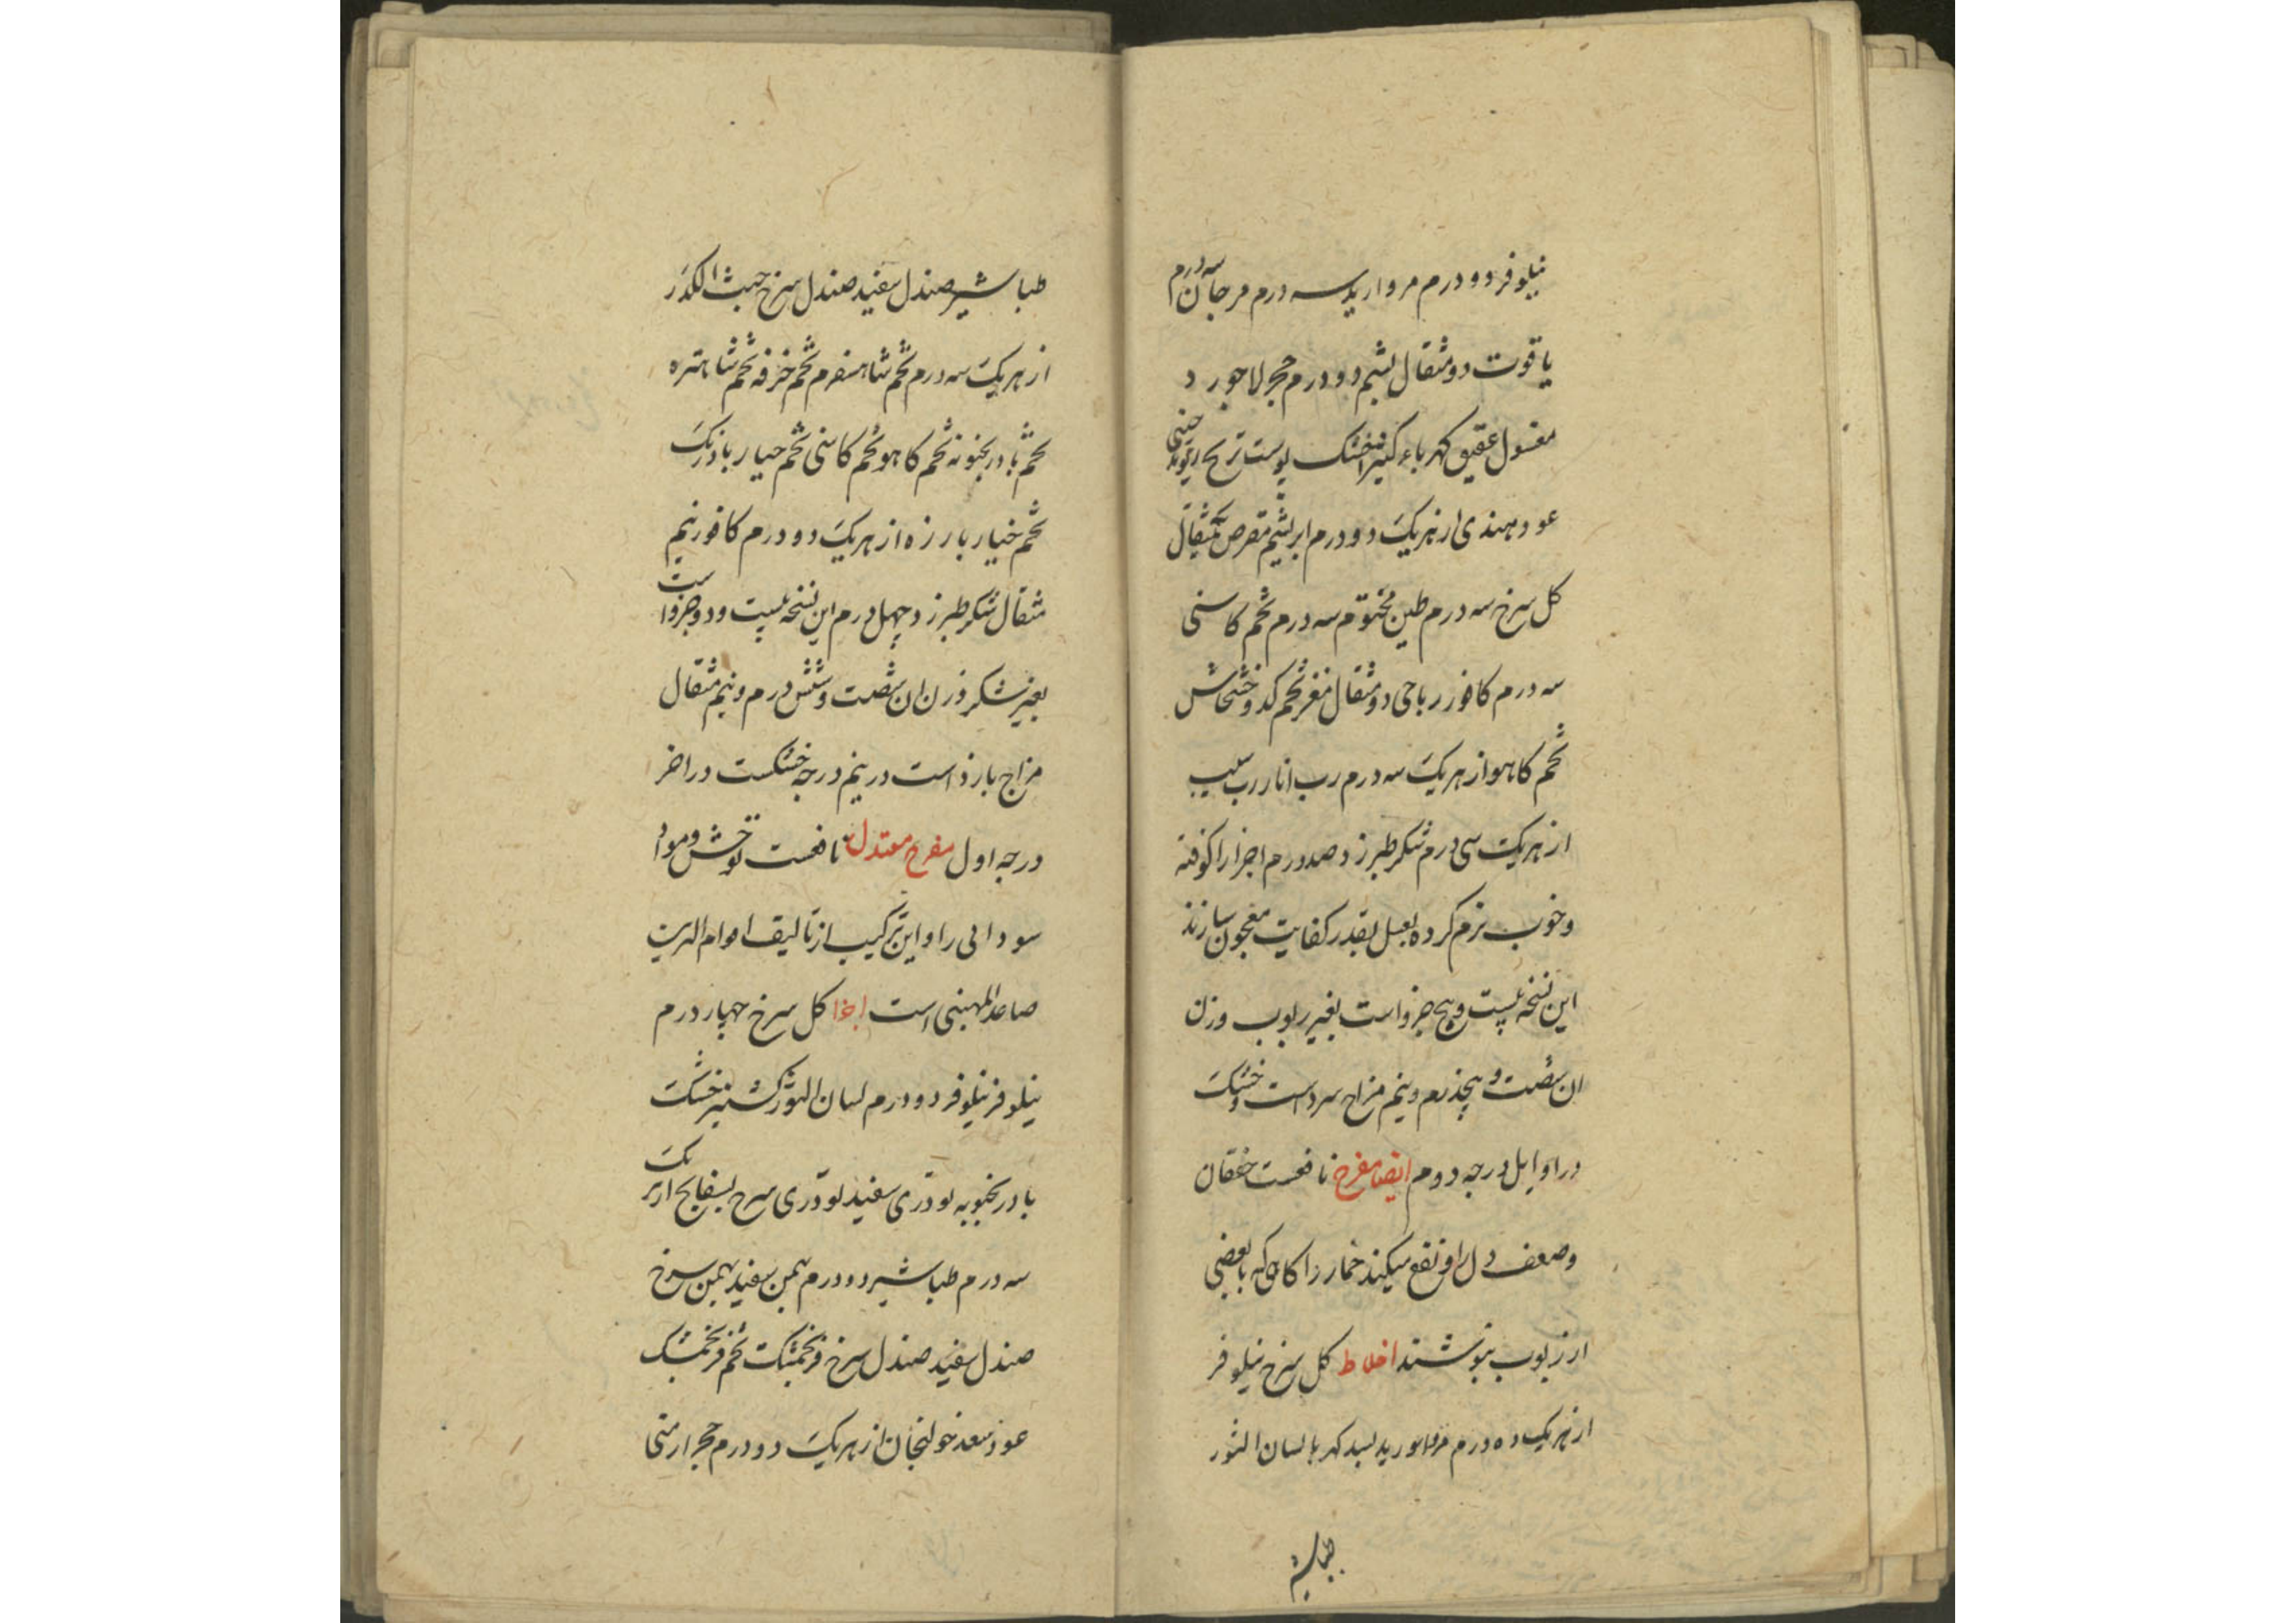 نیلوفر دو درم مروارید سه درم مرجان سه درم
یاقوت دو مثقال یشم دو درم حجر لاجورد
مغسول عقیق کهرباء کشنیز خشک پوست ترنج ریوند چینی
عود هندی از هریک دو درم ابریشم مقرض یکمثقال
کل سرخ سه درم طین مختوم سه درم تخم کاسنی
سه درم کافور رباحی دو مثقال مغز تخم کدو خشخاش
تخم کاهو از هریک سه درم رب انار رب سیب
از هریک سی درم شکر طبرزد صد درم اجزا را کوفته
و خوب نرم کرده بعسل بقدر کفایت معجون سازند
این نسخه بیست و پنج جزو است بغیر ربوب وزن
ان شصت و پنجدرم و نیم مزاج سرد است و خشک
در اوایل درجه دوم ایضا مفرح نافعست خفقان
وضعف دل را و نفع میکند خمار را کاهی که با بعضی
از ربوب بنوشند اخلاط کل سرخ نیلوفر
از هریک ده درم مروارید بسد کهربا لسان الثور
طباشیر
طباشیر صندل سفید صندل سرخ حب الکدر
از هریک سه درم تخم شاهسفرم تخم خرفه تخم شاهتره
تخم بادرنجبویه تخم کاهو تخم کاسنی تخم خیار بادرنک
تخم خیار بارزه از هریک دو درم کافور نیم
مثقال شکر طبرزد چهل درم این نسخه بیست و دو جزو است
بغیر شکر وزن ان شصت و شش درم و نیم مثقال
مزاج بارد است در نیم درجه خشکست در اخر
درجه اول مفرح معتدل نافعست توحش و مواد
سودائی را و این ترکیب از تالیف قوام الدین
صاعد المهینی است اجزا کل سرخ چهار درم
نیلوفر نیلوفر دو درم لسان الثور کشنیز خشک
بادرنجبویه تودری سفید تودری سرخ بسفایج از هریک
سه درم طباشیر دو درم بهمن سفید بهمن سرخ
صندل سفید صندل سرخ فرنجمشک تخم فرنجمشک
عود سعد خولنجان از هریک دو درم حجر ارمنی